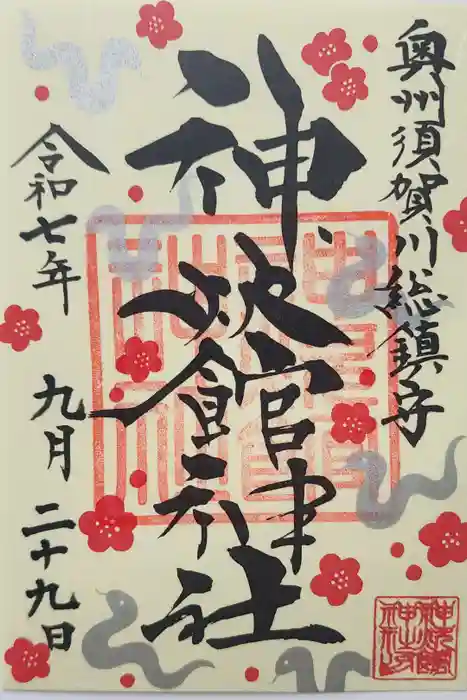 奥州須賀川総鎮守
神炊館神社
令和七年
九月二十九日